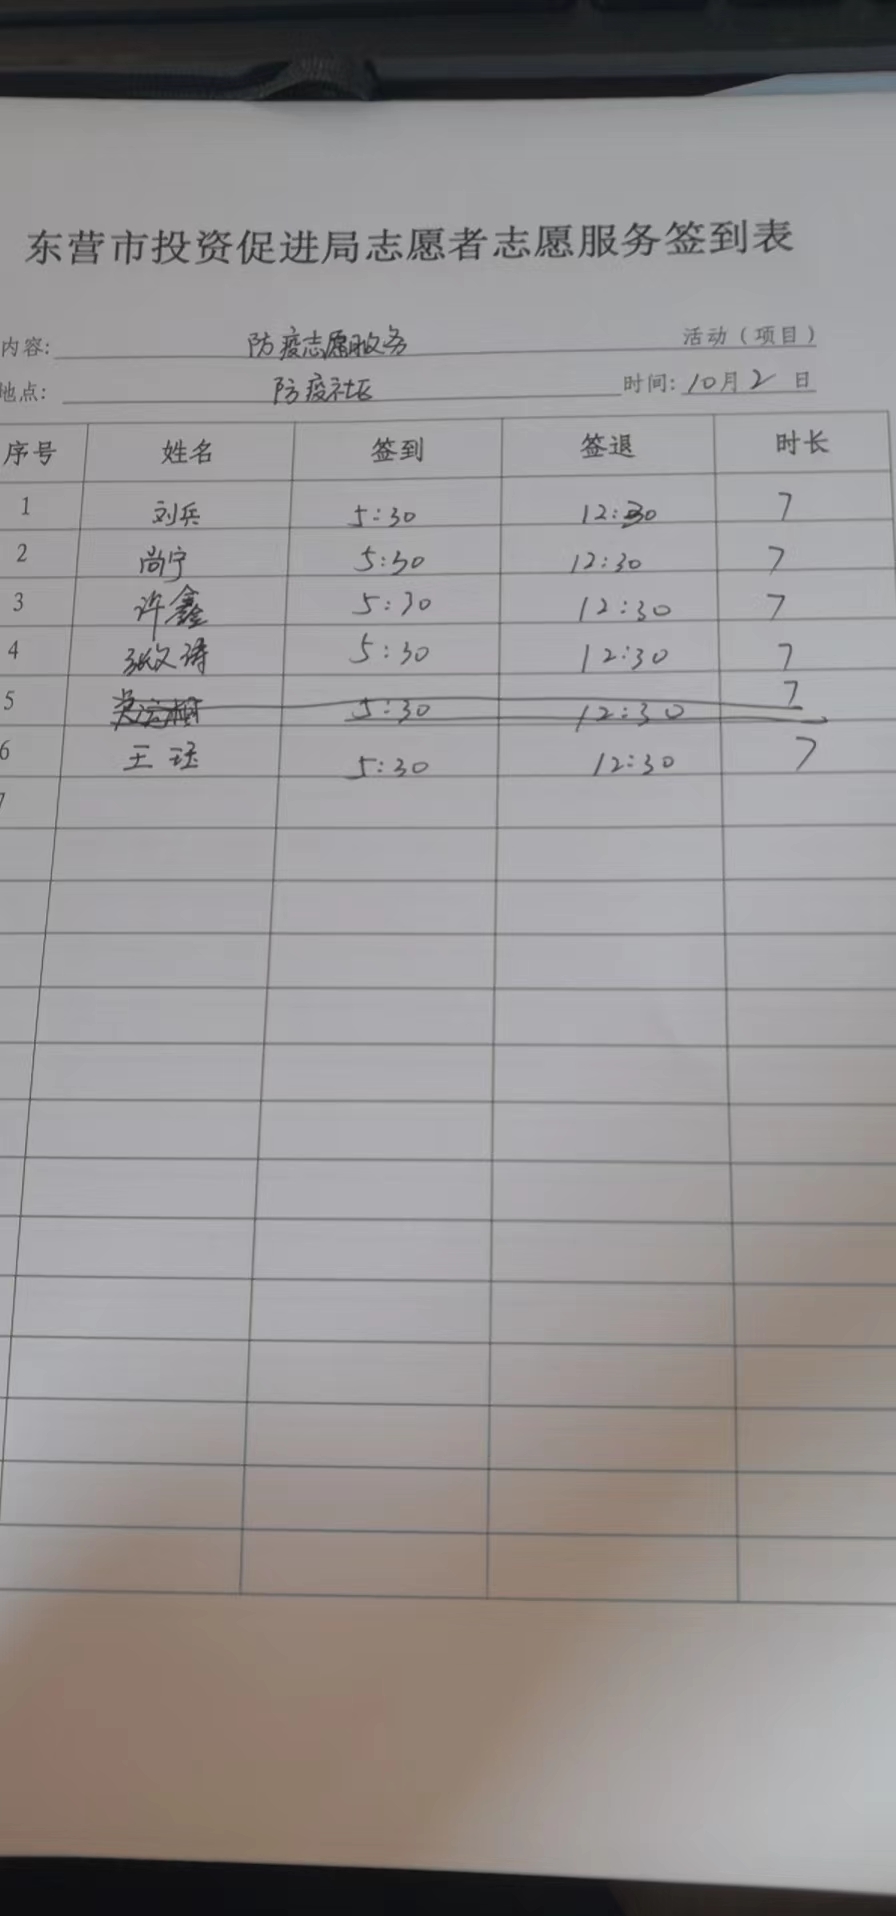 东营市投资促进局志愿者志愿服务签到表
内容: 防疫志愿服务 活动（项目）
地点: 防疫社区 时间: 10月2日
序号 姓名 签到 签退 时长
1 刘兵 5:30 12:30 7
2 尚宁 5:30 12:30 7
3 许鑫 5:30 12:30 7
4 张文涛 5:30 12:30 7
5 5:30 12:30 7
6 王珏 5:30 12:30 7
7